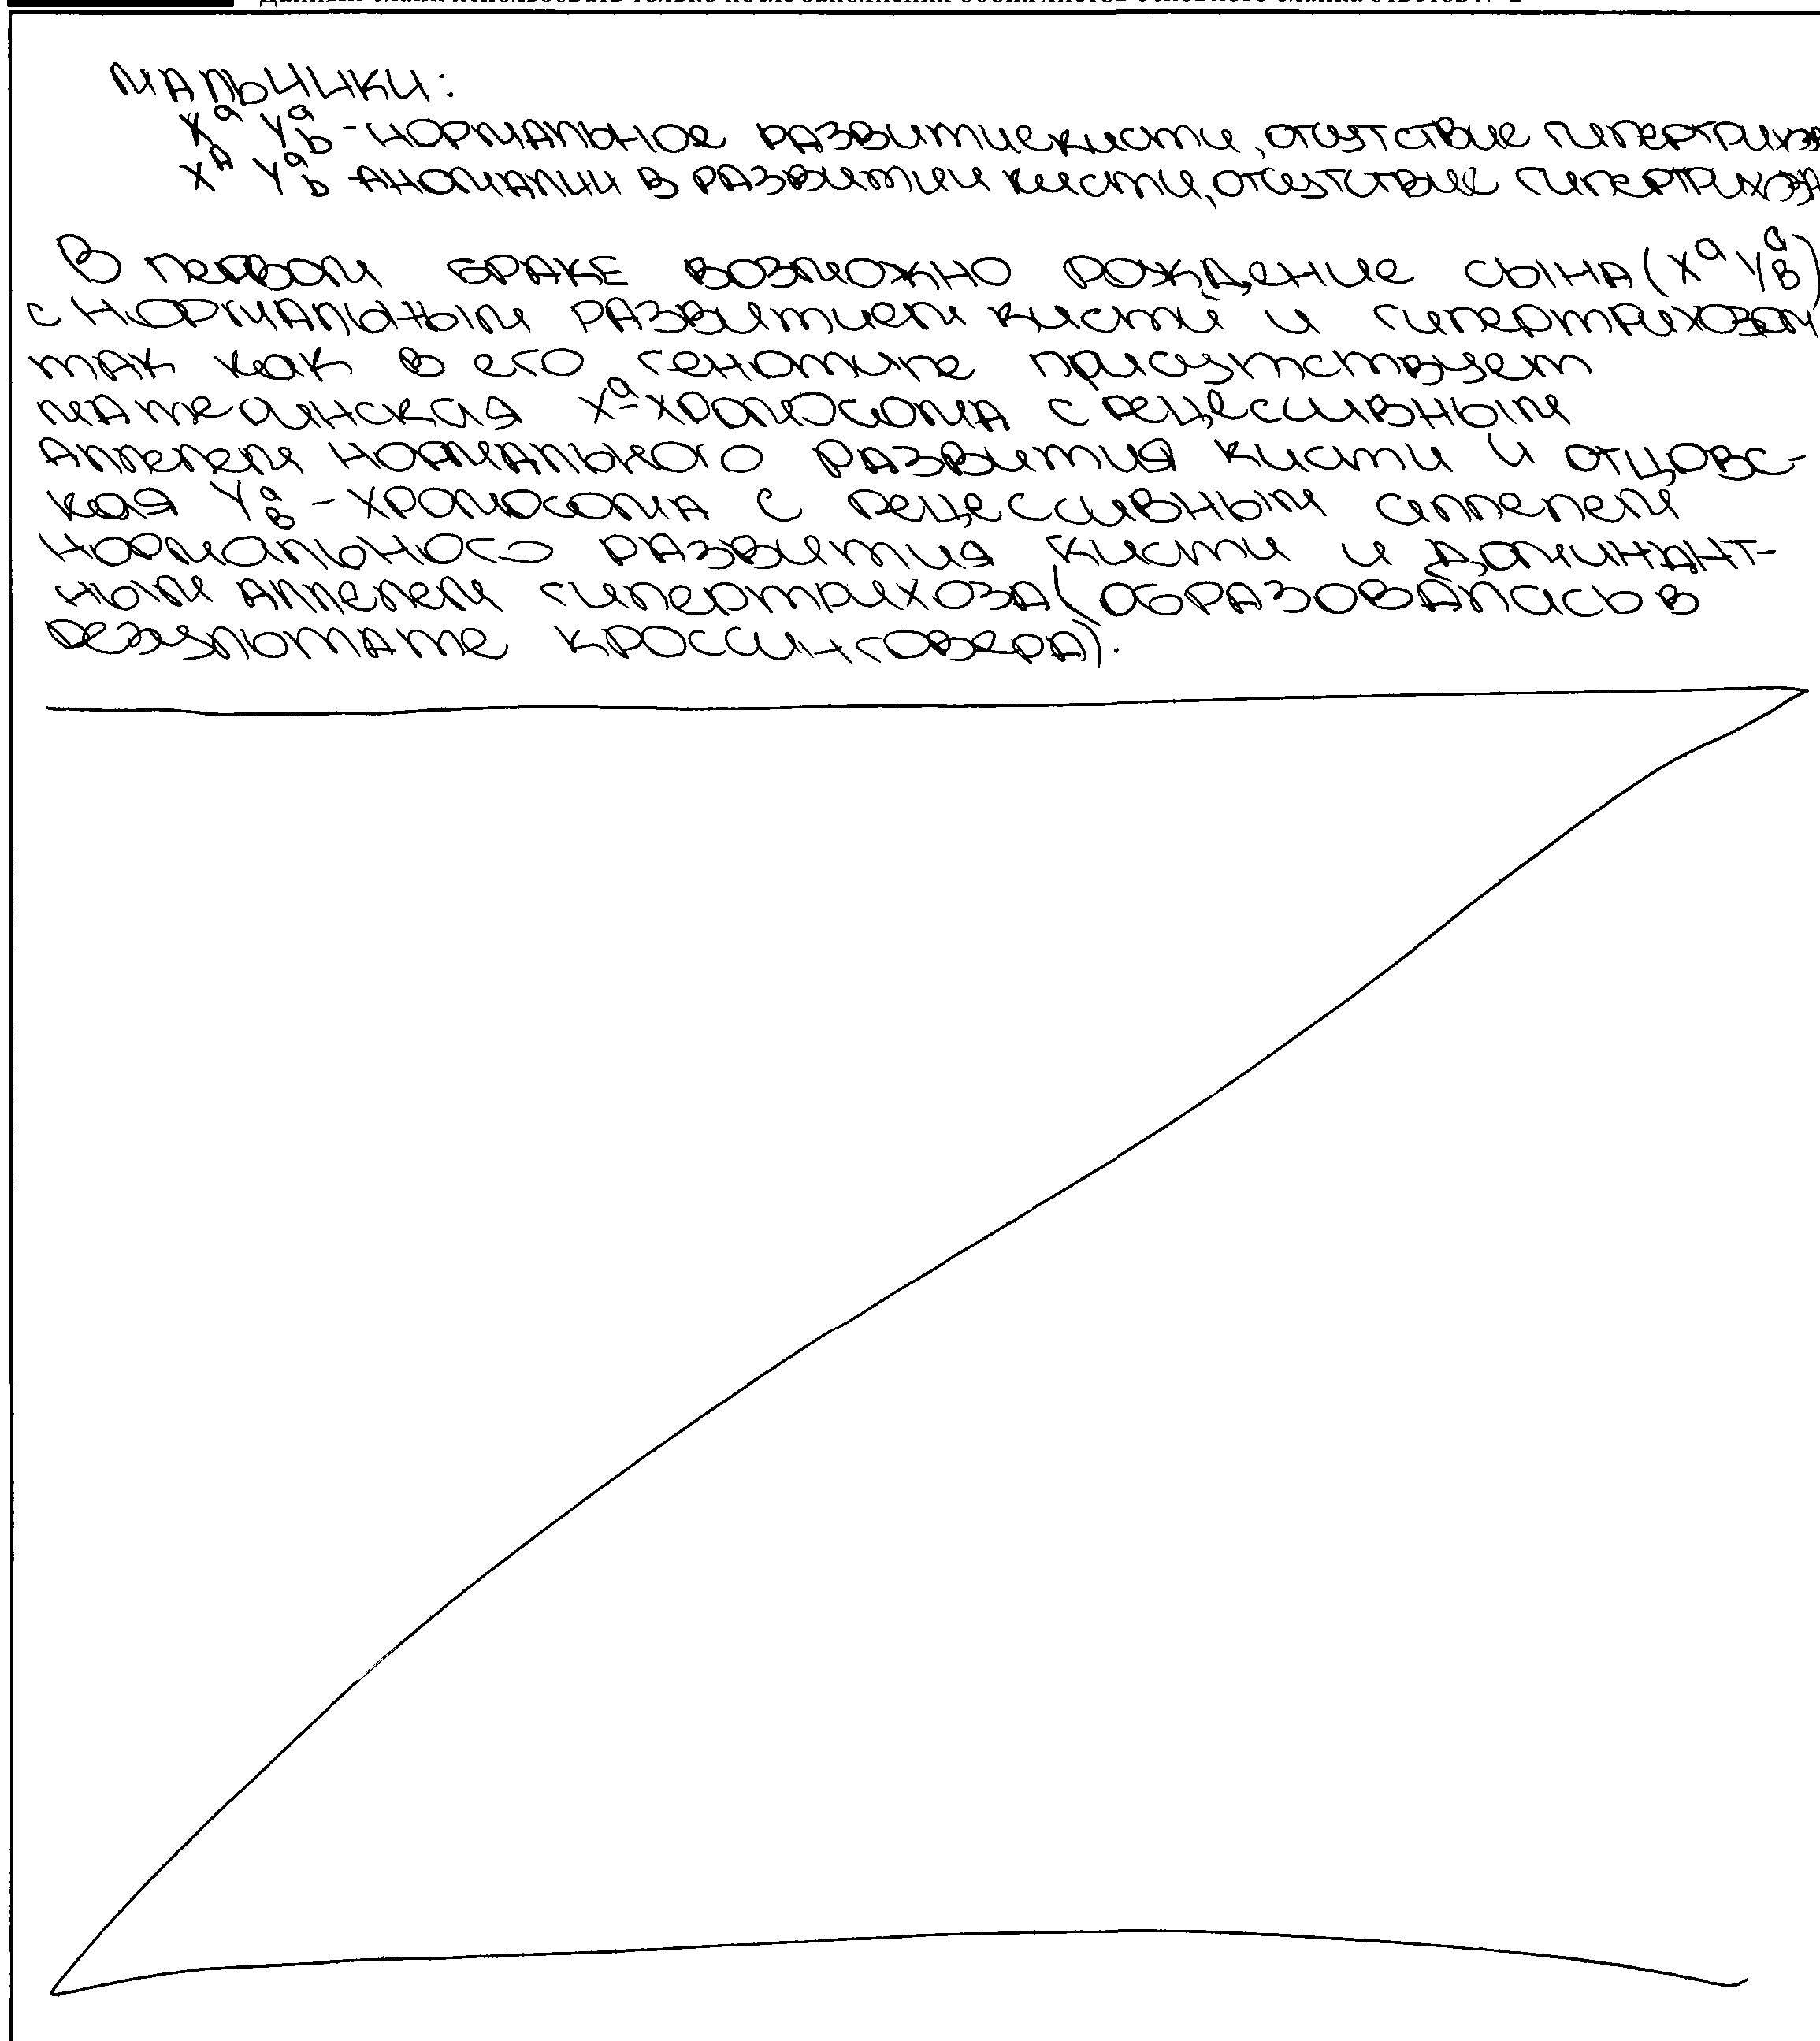 Данный бланк использовать только после заполнения обоих листов основного бланка ответов № 2
мальчики:
Xᵃ Yᵃb - нормальное развитие кисти, отсутствие гипертрихоза
Xᴬ Yᵃb - аномалии в развитии кисти, отсутствие гипертрихоза
В первом браке возможно рождение сына (Xᵃ YᵃB)
с нормальным развитием кисти и гипертрихозом
так как в его генотипе присутствует
материнская Xᵃ-хромосома с рецессивным
аллелем нормального развития кисти и отцовс-
кая YᵃB - хромосома с рецессивным аллелем
нормального развития кисти и доминант-
ным аллелем гипертрихоза (образовалась в
результате кроссинговера).